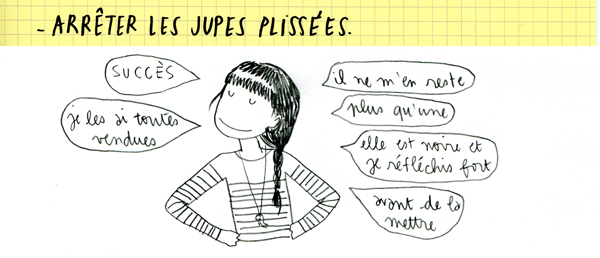 - ARRÊTER LES JUPES PLISSÉES.
SUCCÈS
je les ai toutes
vendues
il ne m'en reste
plus qu'une
elle est noire et
je réfléchis fort
avant de la
mettre